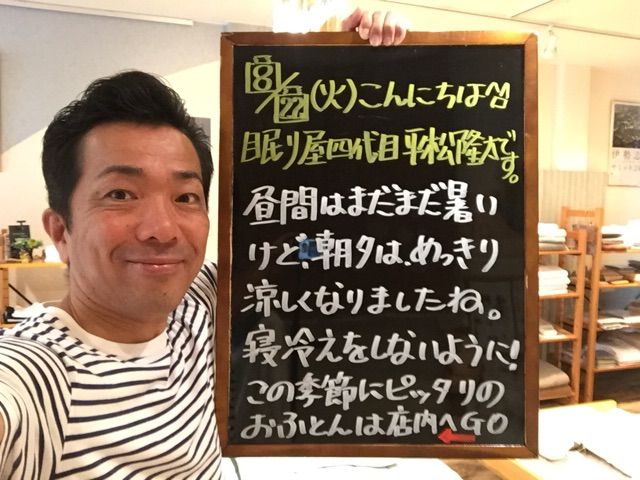 8/22(火)こんにちは^^
眠り屋四代目平松隆太です。
昼間はまだまだ暑い
けど、朝夕は、めっきり
涼しくなりましたね。
寝冷えをしないように!
この季節にピッタリの
おふとんは店内へGO